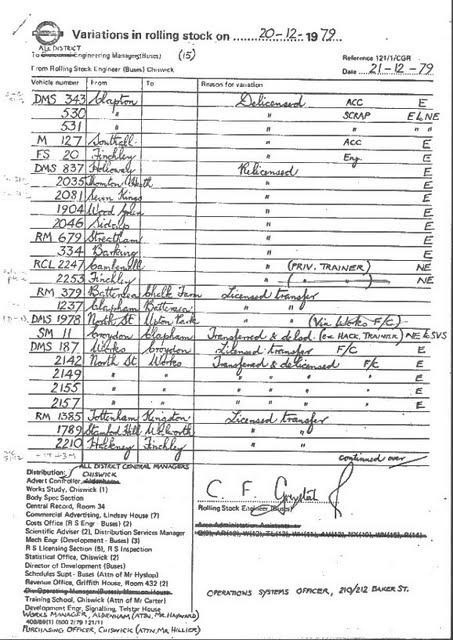 Variations in rolling stock on 20-12-1979
ALL DISTRICT
To Divisional Engineering Managers (Buses) (15)
Reference 121/1/CGR
From Rolling Stock Engineer (Buses) Chiswick
Date 21-12-79
Vehicle number From To Reason for variation
DMS 343 Clapton Delicensed ACC E
530 " " SCRAP E & NE
531 " " " " "
M 127 Southall " ACC E
FS 20 Finchley " Eng. E
DMS 837 Holloway Relicensed E
2035 Thornton Heath " E
2081 Seven Kings " E
1904 Wood Green " E
2046 Sidcup " E
RM 679 Streatham " E
334 Barking " E
RCL 2247 Camberwell " (PRIV. TRAINER) NE
2253 Finchley " ( " " ) NE
RM 379 Battersea Chalk Farm Licensed transfer E
1237 Clapham Battersea " " E
DMS 1978 North St Upton Park " " (Via Works F/C) E
SM 1 Croydon Clapham Transferred & delcd. (ex HACK, TRAINER) NE & SVS
DMS 187 Works Croydon Licensed transfer F/C E
2142 North St Works Transferred & delicensed F/C E
2149 " " " " " " E
2155 " " " " " " E
2157 " " " " " " E
RM 1385 Tottenham Kingston Licensed transfer E
1789 Stamford Hill Walworth " " E
2210 Hackney Finchley " " E
continued over
Distribution: ALL DISTRICT CENTRAL MANAGERS
CHISWICK
Advert Controller, Aldenham
Works Study, Chiswick (1)
Body Spec Section
Central Record, Room 34
Commercial Advertising, Lindsey House (7)
Costs Office (R S Engr - Buses) (2)
Scientific Adviser (2), Distribution Services Manager
Mech Engr (Development) (3)
R S Licensing Section (5), R S Inspection
Statistical Office, Chiswick (2)
Director of Development (Buses)
Schedules Supt - Buses (Attn of Mr Hyslop)
Revenue Office, Griffith House, Room 432 (2)
Div Operating Manager (Buses)
Training School, Chiswick (Attn of Mr Carter)
Development Engr, Signalling, Telstar House
WORKS MANAGER, ALDENHAM (ATTN. MR. HAYWARD)
408/89(1) (500 2/79 121/1)
PURCHASING OFFICER, CHISWICK (ATTN. MR HILLIER)
C. F.
Rolling Stock Engineer (Buses)
Area Administration Assistants
OPERATIONS SYSTEMS OFFICER, 210/212 BAKER ST.